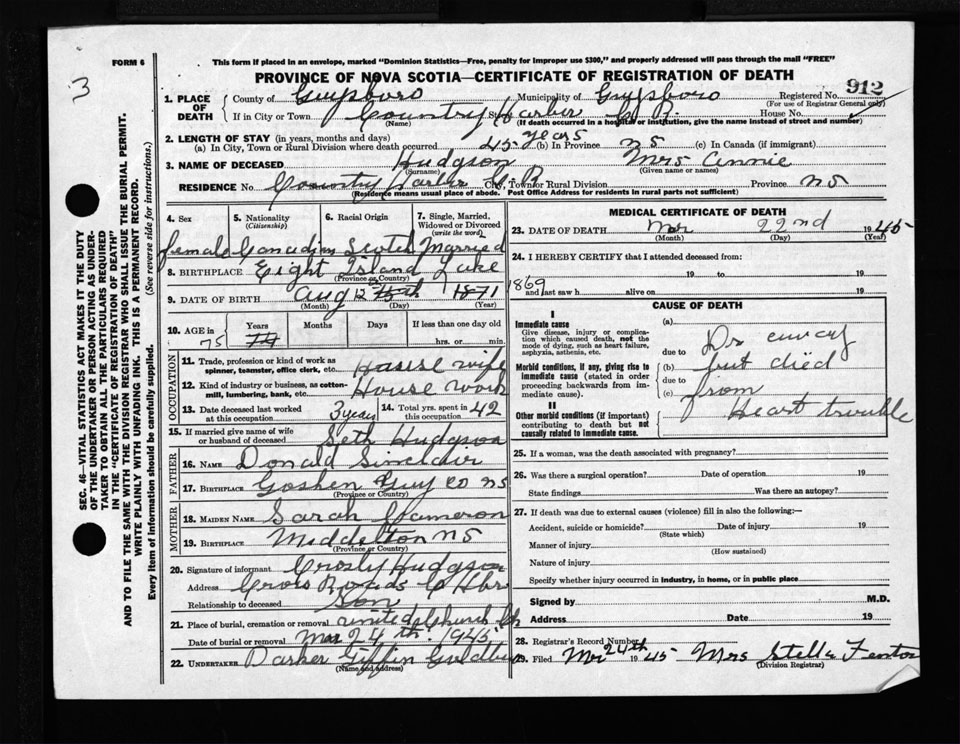 3
FORM 6
This form if placed in an envelope, marked "Dominion Statistics—Free, penalty for improper use $300," and properly addressed will pass through the mail "FREE"
PROVINCE OF NOVA SCOTIA—CERTIFICATE OF REGISTRATION OF DEATH
912
SEC. 46—VITAL STATISTICS ACT MAKES IT THE DUTY
OF THE UNDERTAKER OR PERSON ACTING AS UNDER-
TAKER TO OBTAIN ALL THE PARTICULARS REQUIRED
IN THE "CERTIFICATE OF REGISTRATION OF DEATH"
AND TO FILE THE SAME WITH THE DIVISION REGISTRAR WHO SHALL ISSUE THE BURIAL PERMIT.
WRITE PLAINLY WITH UNFADING INK. THIS IS A PERMANENT RECORD.
Every item of information should be carefully supplied. (See reverse side for instructions.)
1. PLACE OF DEATH
County of Guysboro Municipality of Guysboro Registered No.
(For use of Registrar General only)
If in City or Town Country Harbor House No.
(Name) (If death occurred in a hospital or institution, give the name instead of street and number)
2. LENGTH OF STAY (in years, months and days)
(a) In City, Town or Rural Division where death occurred 45 years (b) In Province N S (c) In Canada (if immigrant)
3. NAME OF DECEASED Hudgson Mrs Annie
(Surname) (Given name or names)
RESIDENCE No. Country Harbor City, Town or Rural Division Province N S
(Residence means usual place of abode. Post Office Address for residents in rural parts not sufficient)
4. Sex 5. Nationality (Citizenship) 6. Racial Origin 7. Single, Married, Widowed or Divorced (write the word)
female Canadian Scotch Married
8. BIRTHPLACE Eight Island Lake
(Province or Country)
9. DATE OF BIRTH Aug 12 1871
(Month) (Day) (Year)
10. AGE in Years Months Days If less than one day old
75 74 hrs. or min.
OCCUPATION
11. Trade, profession or kind of work as spinner, teamster, office clerk, etc. House wife
12. Kind of industry or business, as cotton-mill, lumbering, bank, etc. House work
13. Date deceased last worked at this occupation 3 years 14. Total yrs. spent in this occupation 42
15. If married give name of wife or husband of deceased Seth Hudgson
FATHER
16. NAME Donald Sinclair
17. BIRTHPLACE Goshen Guy Co N S
(Province or Country)
MOTHER
18. MAIDEN NAME Sarah Cameron
19. BIRTHPLACE Middelton N S
(Province or Country)
20. Signature of informant Crosly Hudgson
Address Cross Roads C Hbr
Relationship to deceased Son
21. Place of burial, cremation or removal united Church
Date of burial or removal Mar 24th 1945
22. UNDERTAKER Parker Giffin
(Name and address)
MEDICAL CERTIFICATE OF DEATH
23. DATE OF DEATH Mar 22nd 1945
(Month) (Day) (Year)
24. I HEREBY CERTIFY that I attended deceased from:
19 to 19
1869
and last saw h alive on 19
CAUSE OF DEATH
I
Immediate cause
Give disease, injury or complication which caused death, not the mode of dying, such as heart failure, asphyxia, asthenia, etc.
(a)
due to
Morbid conditions, if any, giving rise to immediate cause (stated in order proceeding backwards from immediate cause)
(b)
due to
(c)
II
Other morbid conditions (if important) contributing to death but not causally related to immediate cause.
Dr away
but died
from
Heart trouble
25. If a woman, was the death associated with pregnancy?
26. Was there a surgical operation? Date of operation 19
State findings Was there an autopsy?
27. If death was due to external causes (violence) fill in also the following:—
Accident, suicide or homicide? Date of injury 19
(State which)
Manner of injury
(How sustained)
Nature of injury
Specify whether injury occurred in industry, in home, or in public place
Signed by M.D.
Address Date 19
28. Registrar's Record Number
29. Filed Mar 24th 1945 Mrs Stella Fenton
(Division Registrar)